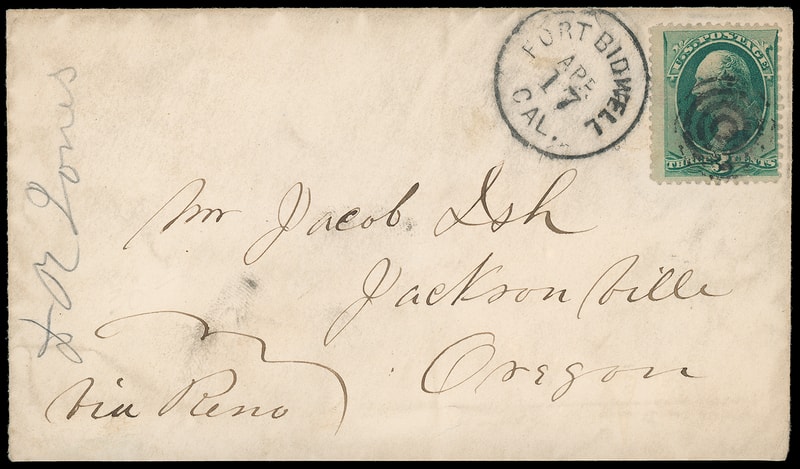 FORT BIDWELL
APR.
17
CAL.
U.S. POSTAGE
THREE CENTS
3
Mr Jacob Ish
Jacksonville
Oregon
via Reno
Jones